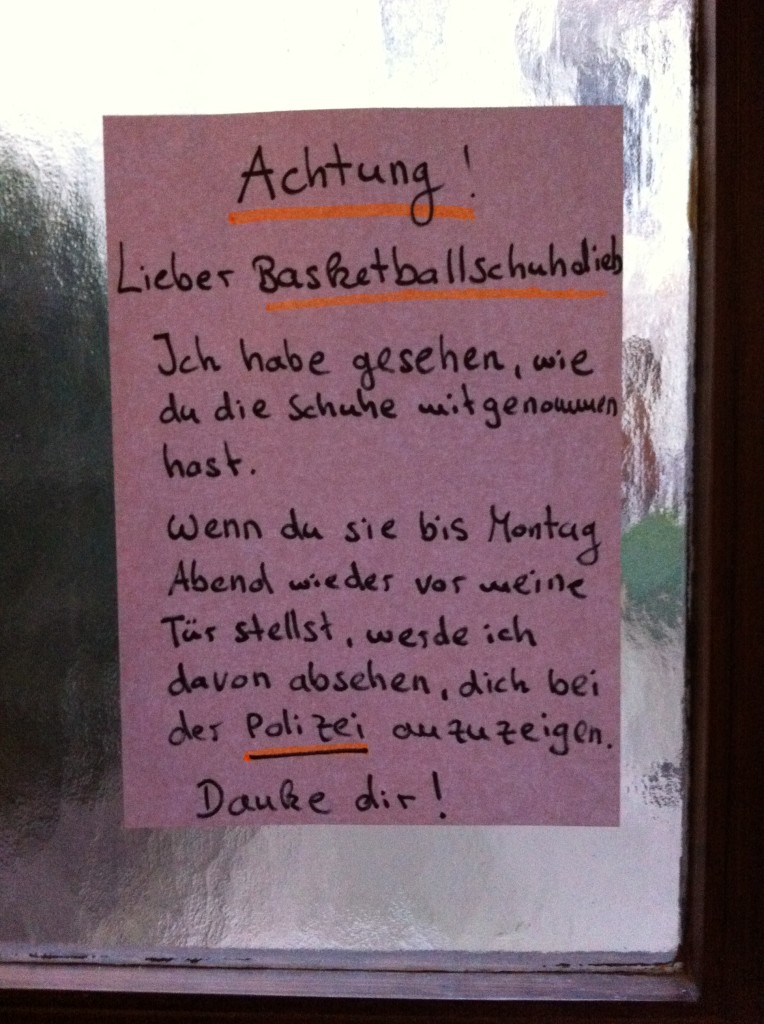 Achtung!
Lieber Basketballschuhdieb
Ich habe gesehen, wie
du die Schuhe mitgenommen
hast.
Wenn du sie bis Montag
Abend wieder vor meine
Tür stellst, werde ich
davon absehen, dich bei
der Polizei anzuzeigen.
Danke dir!